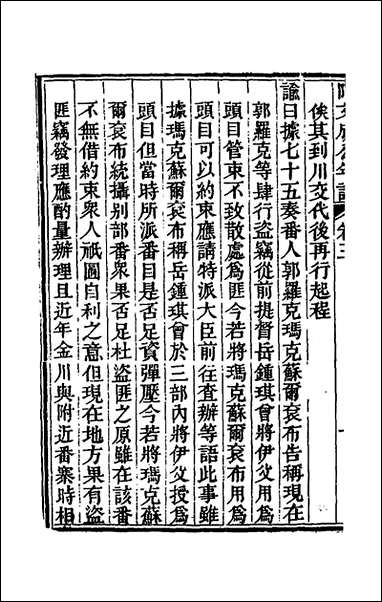 俟其到川交代後再行起程
諭曰據七十五奏番人郭羅克瑪克蘇爾袞布告稱現在
郭羅克等肆行盜竊從前提督岳鍾琪曾將伊父用爲
頭目管束不致散處爲匪今若將瑪克蘇爾袞布用爲
頭目可以約束應請特派大臣前往查辦等語此事雖
據瑪克蘇爾袞布稱岳鍾琪曾於三部內將伊父授爲
頭目但當時所派番目是否足資彈壓今若將瑪克蘇
爾袞布統攝別部番衆果否足杜盜匪之原雖在該番
不無借約束衆人祇圖自利之意但現在地方果有盜
匪竊發理應酌量辦理且近年金川與附近番衆時相